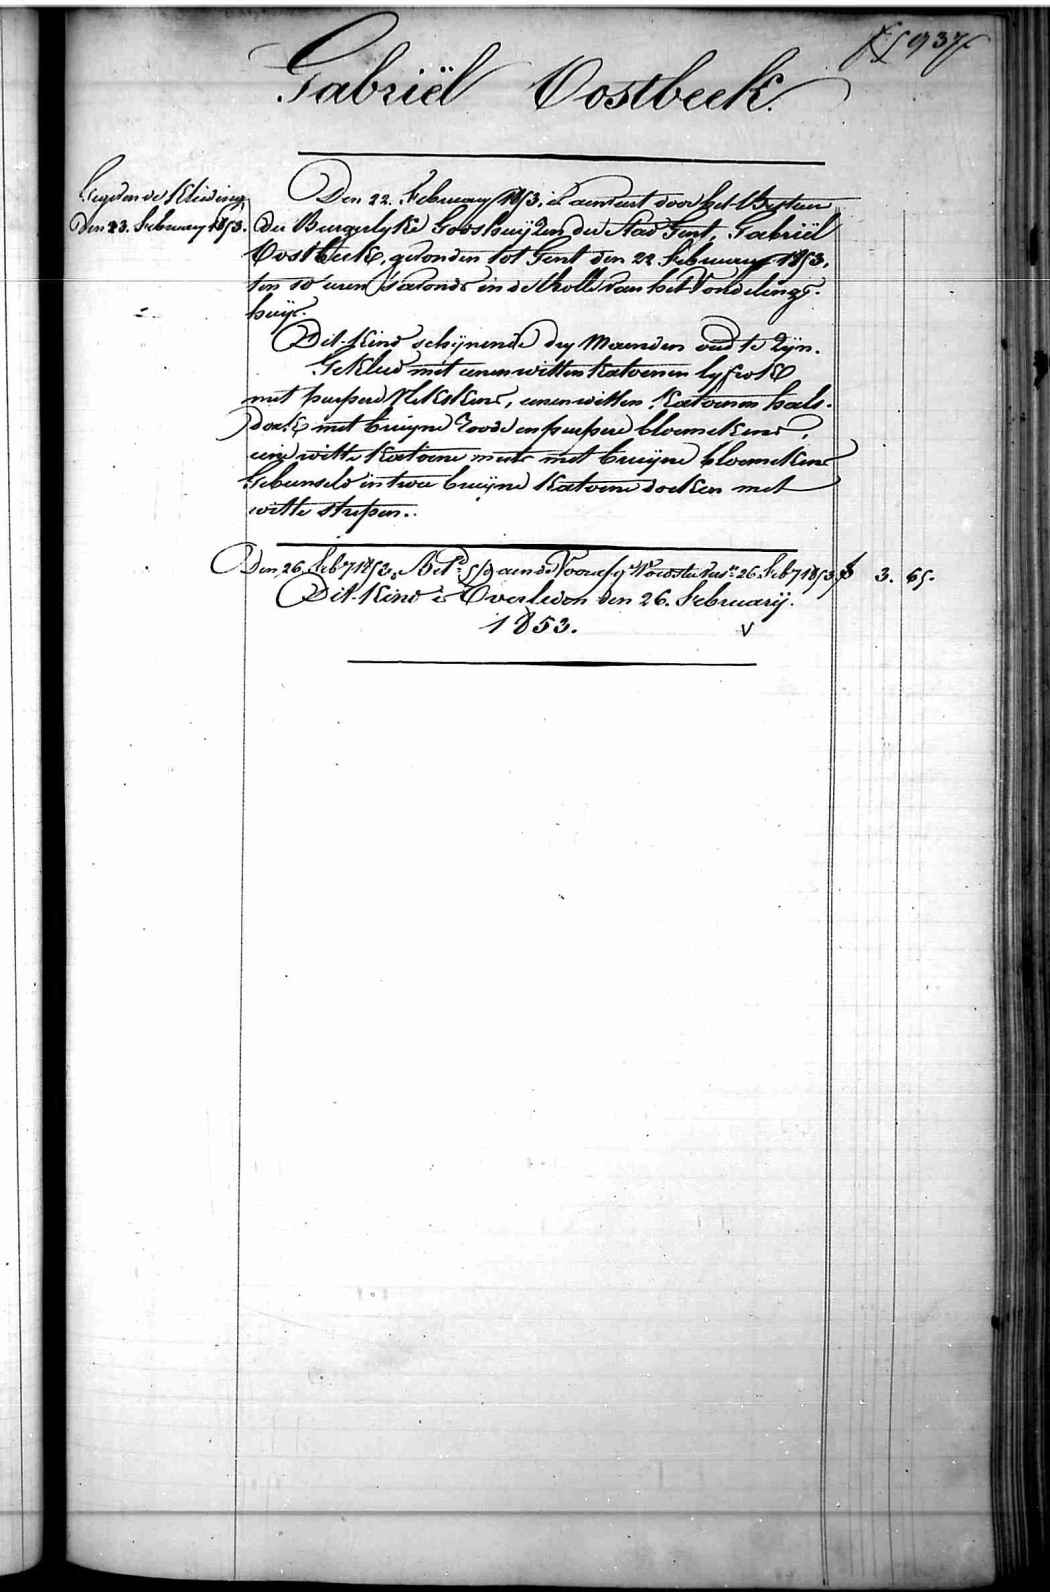 937
Gabriël Oostbeek.
Gegeven de Kleeding
Den 23. February 1853.
Den 22. February 1853. is aenveert door het Bestuer
der Burgerlyke Godshuyzen der stad Gent, Gabriël
Oostbeek, gevonden tot Gent den 22 February 1853,
ten 10 uren s'avonds in de Rolle van het Vondelings-
huys.
Dit Kind schynende dry Maenden oud te zyn.
Gekleed met eenen witten Katoenen lyfrok
met purpere Plekskens, eenen witten Katoenen hals-
doek met bruyne roode en purpere bloemekens,
eene witte Katoene muts met bruyne bloemekens
Gebunseld in twee bruyne Katoene doeken met
witte strepen.
Den 26. Feb 1853. aen de 26. Feb 1853 3. 65.
Dit Kind is Overleden den 26. February.
1853. V